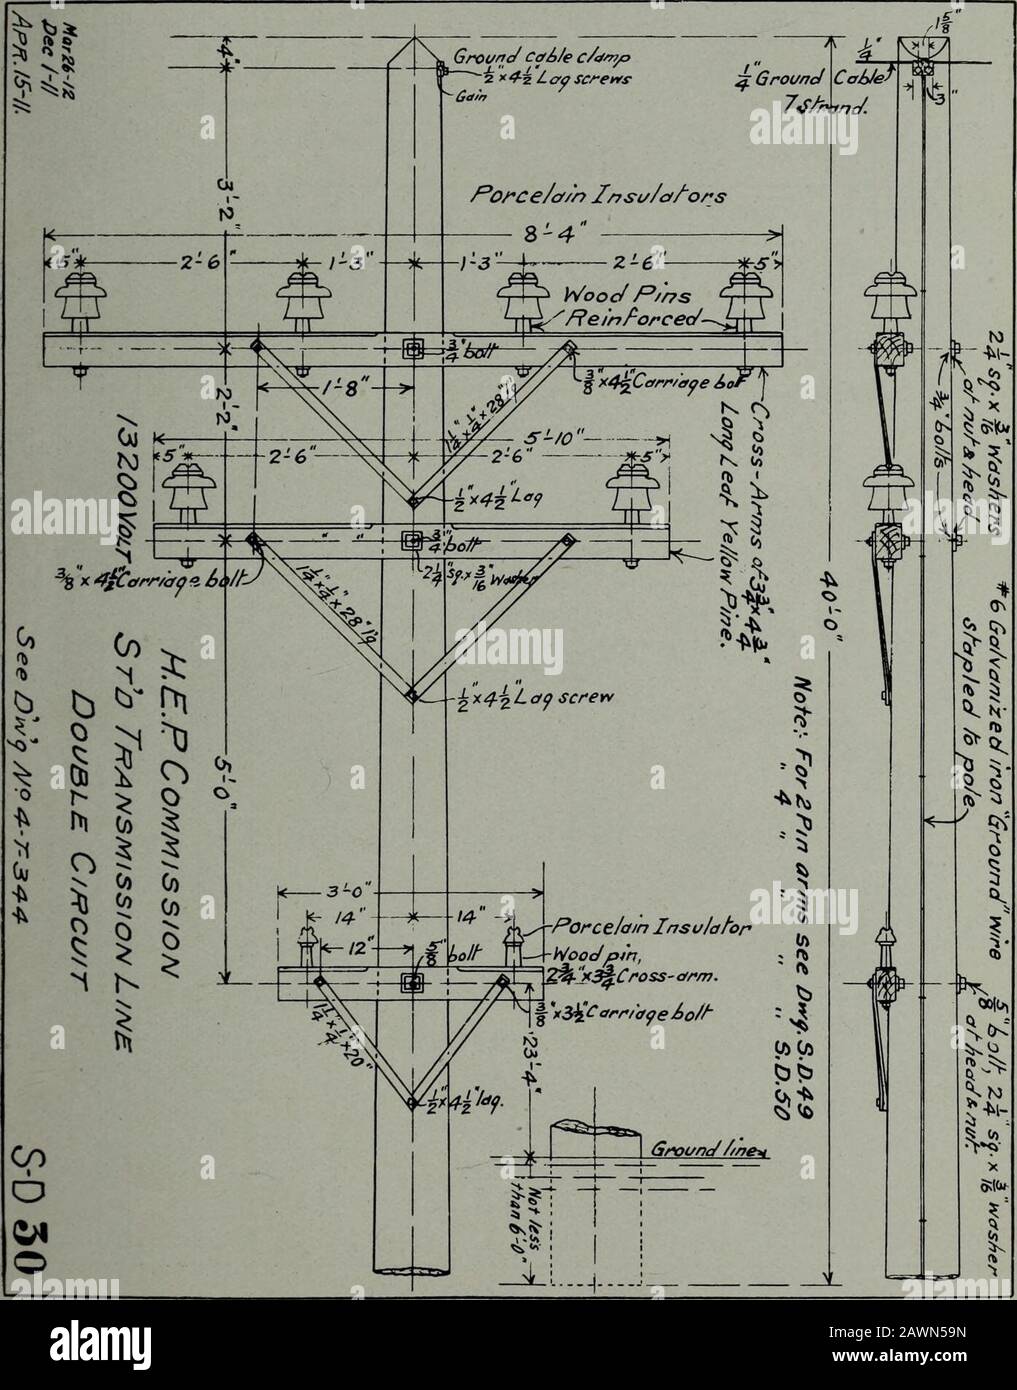 Mar 26-12
Dec 1-11
APR. 15-11.
4"
Ground cable clamp
1/2" x 4 1/2" Lag screws
Gain
1/4" Ground Cable
7 strand.
1 5/8"
1/4"
3"
3'-2"
Porcelain Insulators
8'-4"
5"
2'-6"
1'-3"
1'-3"
2'-6"
5"
Wood Pins
Reinforced
3/4" bolt
3/8" x 4 1/2" Carriage bolt
1'-8"
1 1/4" x 1/4" x 28" l'g
2'-2"
5'-10"
5"
2'-6"
2'-6"
5"
1/2" x 4 1/2" Lag
Cross-Arms of 3 3/4" x 4 3/4"
Long Leaf Yellow Pine.
3/4" bolt
2 1/4" sq. x 3/16" Washer
3/8" x 4 1/2" Carriage bolt
1 1/4" x 1/4" x 28" l'g
1/2" x 4 1/2" Lag screw
5'-0"
40'-0"
3'-0"
14"
14"
12"
5/8" bolt
Porcelain Insulator
Wood pin,
2 3/4" x 3 3/4" Cross-arm.
3/8" x 3 1/2" Carriage bolt
1 1/4" x 1/4" x 20"
1/2" x 4 1/2" lag.
23'-4"
Ground line
Not less
than 6'-0"
2 1/4" sq. x 3/16" Washers
at nut & head
3/4" bolts
#6 Galvanized iron "Ground" wire
stapled to pole
5/8" bolt, 2 1/4" sq. x 3/16" washer
at head & nut.
Note: For 2 Pin arms see Dwg. S.D.49
" 4 " " " " S.D.50
H.E.P. COMMISSION
ST'D TRANSMISSION LINE
DOUBLE CIRCUIT
13200 VOLT
See Dw'g No 4-T-344
S-D 30
alamy
Image ID: 2AWN59N
www.alamy.com